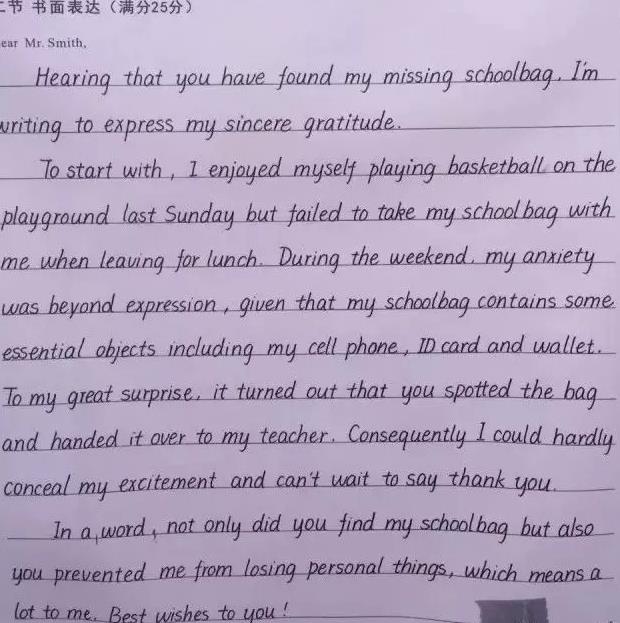 二节 书面表达（满分25分）
ear Mr. Smith,
Hearing that you have found my missing schoolbag, I'm
writing to express my sincere gratitude.
To start with, I enjoyed myself playing basketball on the
playground last Sunday but failed to take my schoolbag with
me when leaving for lunch. During the weekend, my anxiety
was beyond expression, given that my schoolbag contains some
essential objects including my cell phone, ID card and wallet.
To my great surprise, it turned out that you spotted the bag
and handed it over to my teacher. Consequently I could hardly
conceal my excitement and can't wait to say thank you.
In a word, not only did you find my schoolbag but also
you prevented me from losing personal things, which means a
lot to me. Best wishes to you!